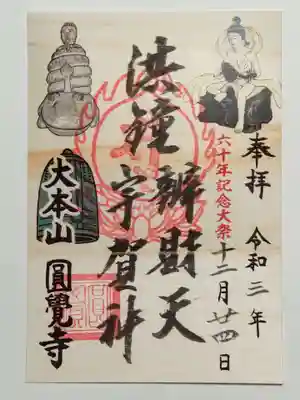 奉拝 令和三年
十二月廿四日
六十年記念大祭
洪鐘 辨財天
宇賀神
大本山
圓覺寺